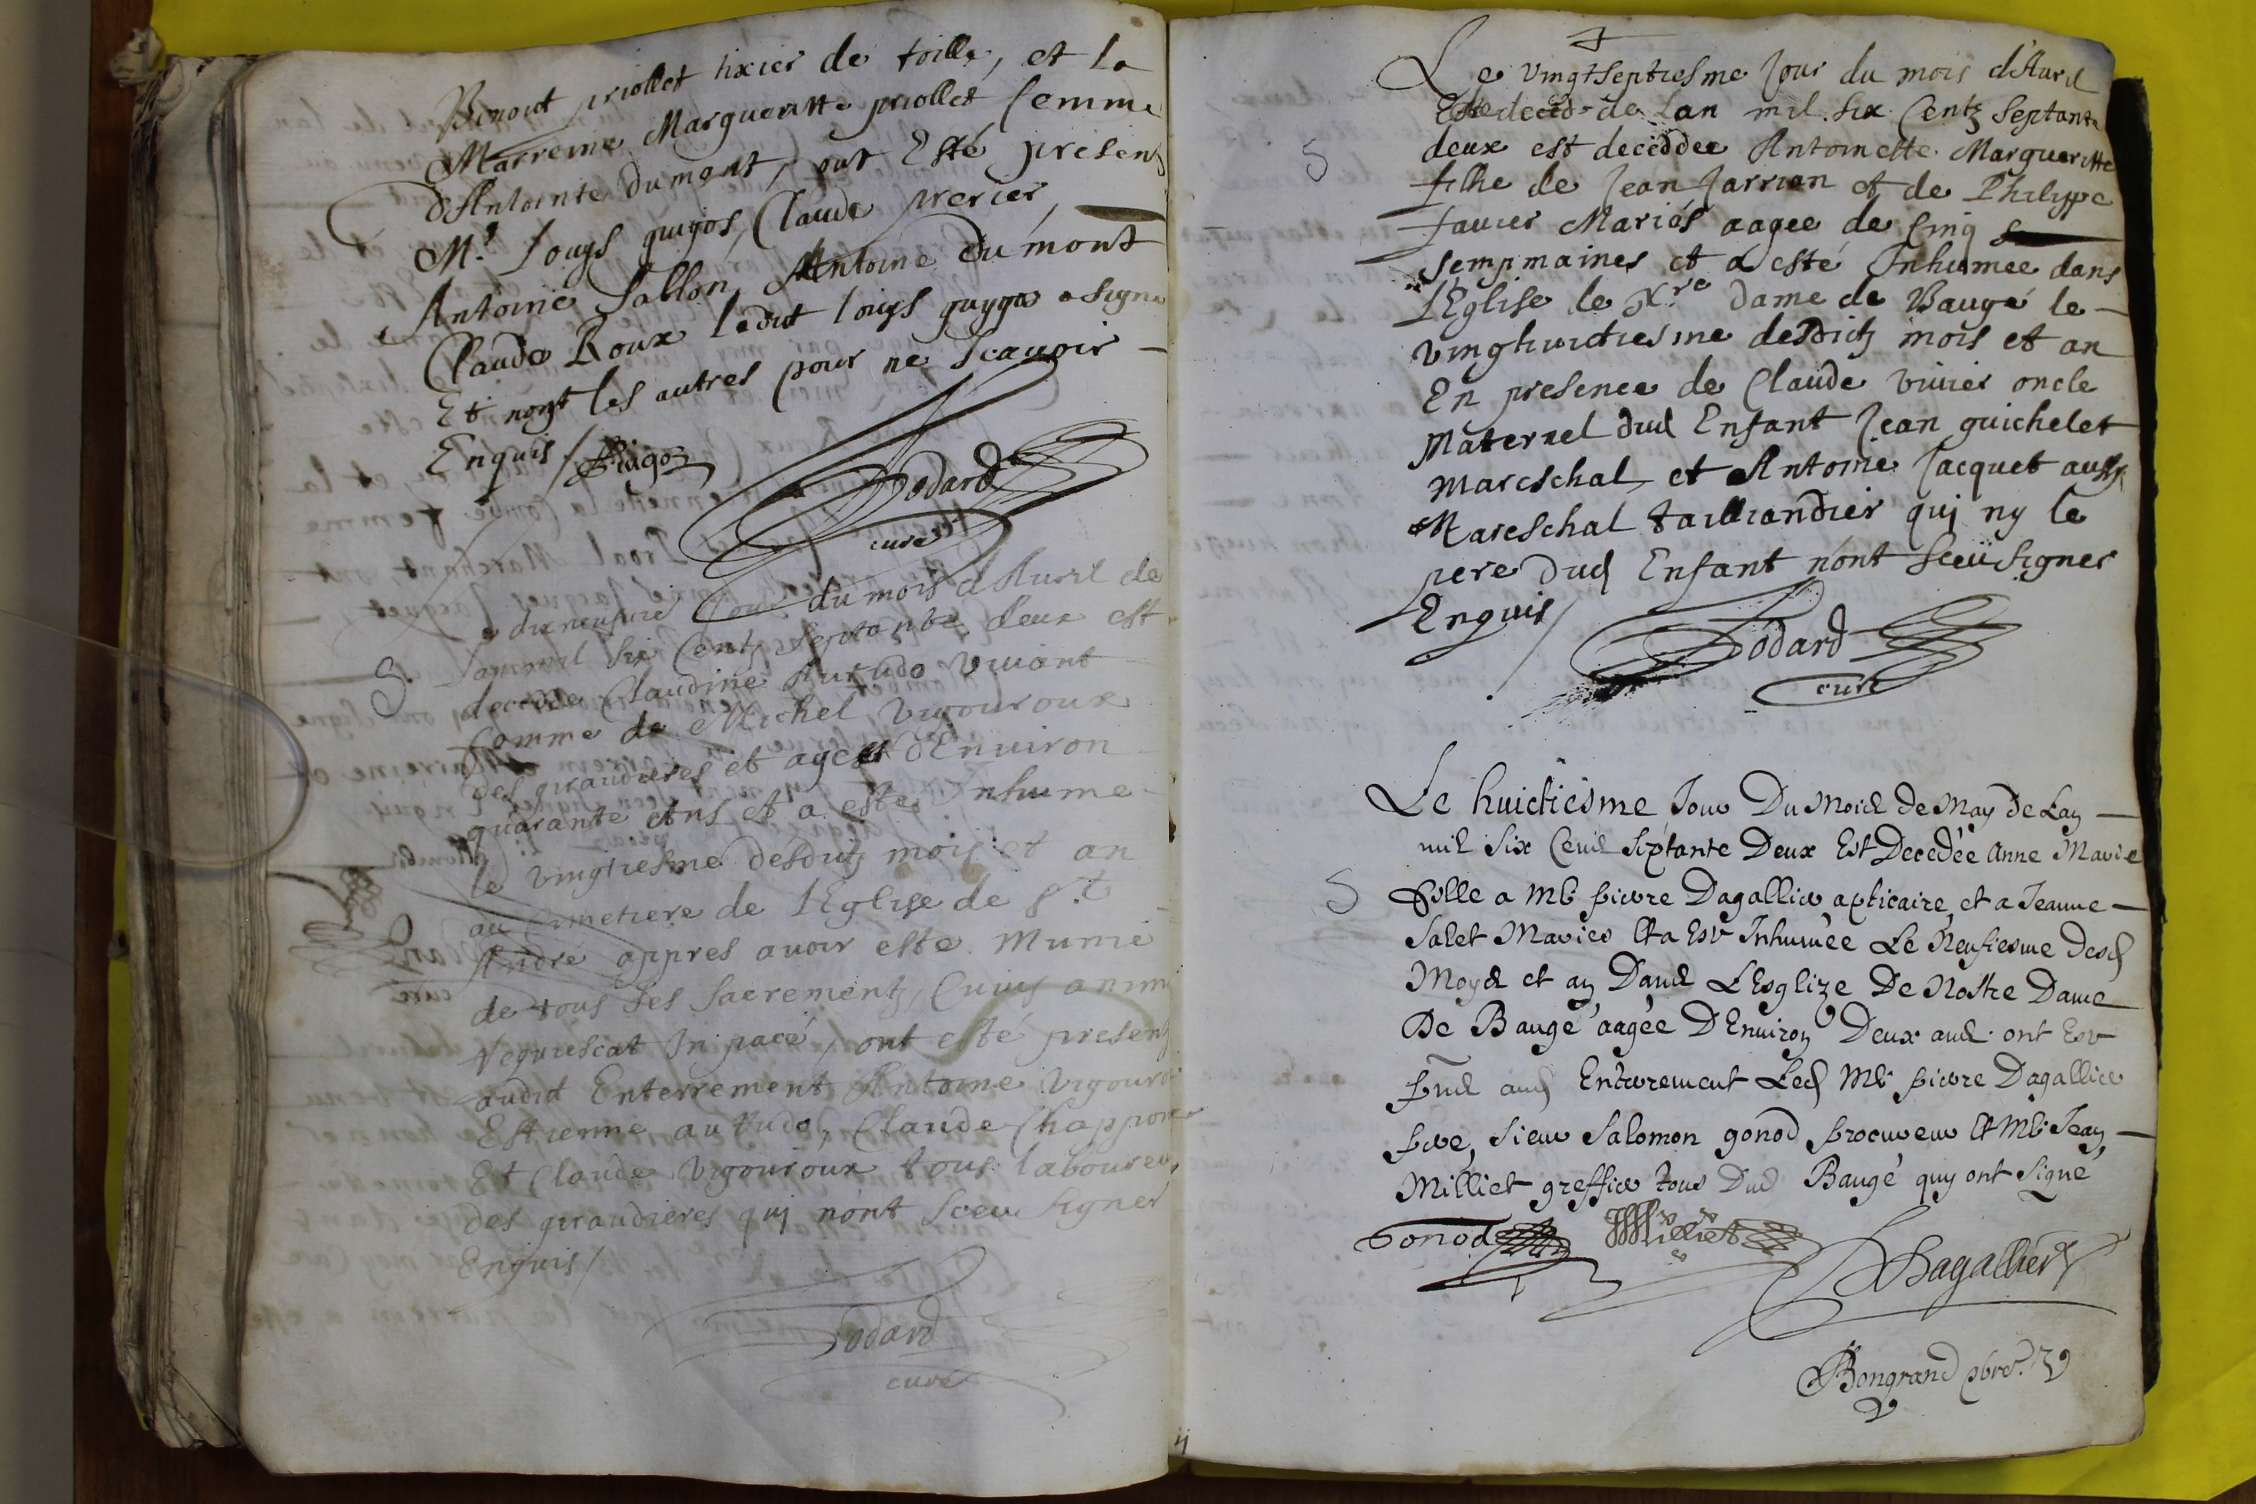 Benoit priollet tixier de toille, et la
Marreine Margueritte priollet femme
d'Antointe dumont, ont Esté presens
Mr. Louys guigos, Claude prerier
Antoine Sallon, Antoine du mont
Claude Roux ledit louys guygo a signé
Et nont les autres pour ne scavoir
Enquis /
Godard
curé
dixneufvie Jour du mois d'Avril de
lan mil six Centz septante deux est
decedée Claudine Autudo vivant
femme de Michel vigouroux
des giraudieres et agee d'Environ
quarante Ans et a esté Inhumé
le vingtiesme desditz mois et an
au Cimetiere de l'Eglise de St
André appres avoir esté Munie
de tous ses sacrementz, Cuius anim
requiescat In pacé, ont esté presentz
audit Enterrement Antoine vigouro
Estienne autudo, Claude Chappon
Et Claude vigouroux tous laboureu
des giraudieres qui nont sceu signer
Enquis /
Godard
curé
Le vingtseptiesme Jour du mois d'Avril
de lan mil six Centz septante
deux est deceddee Antoinette Margueritte
S
fille de Jean Jarrian et de Philippe
favier Mariés aagee de Cinq
sempmaines et a esté Inhumee dans
l'Eglise le Nre dame de Baugé le
vinghuictiesme desditz mois et an
En presence de Claude vivier oncle
Maternel dud Enfant Jean guichelet
Mareschal et Antoine Jacquet aussy
Mareschal taillandier qui ny le
pere dud Enfant nont sceu signer
Enquis /
Godard
curé
Le huictiesme Jour Du Mois de May de Lan
mil six Cens septante Deux Est Decedée Anne Marie
S
fille a Me pierre Dagallier apticaire et a Jeanne
Salet Mariés Et a Esté Inhumée Le Neufiesme desd
Moys et an Dans L'Esglize De Nostre Dame
De Baugé aagée D'Environ Deux ans ont Esté
pns aud Enterrement Led Me pierre Dagallier
pere, Sieur Salomon gonod procureur Et Me Jean
Milliet greffier tous Dud Baugé quy ont signé
Gonod
Milliet
Dagallier
Bongrand pbre